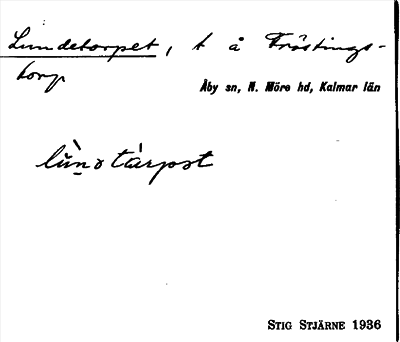 Lundetorpet, t å Fröstings-
torp
Åby sn, N. Möre hd, Kalmar län
lùn̠ɤtárpət
STIG STJÄRNE 1936